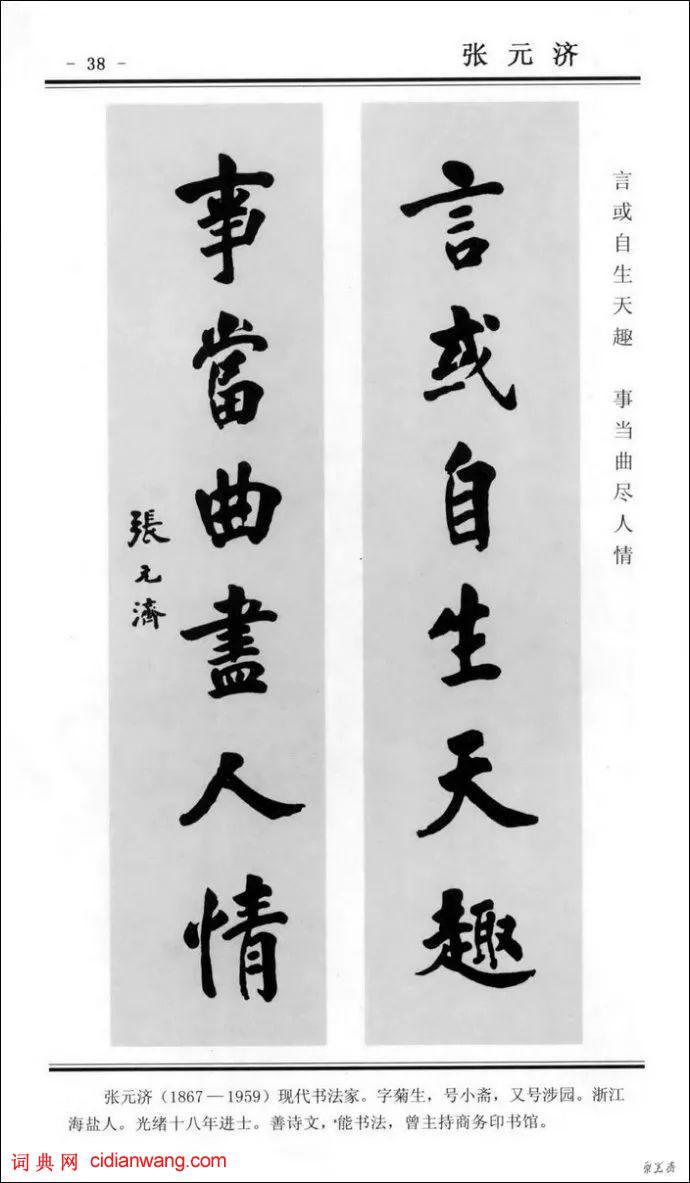 - 38 -
张元济
言或自生天趣 事当曲尽人情
言或自生天趣
事當曲盡人情
張元濟
张元济（1867—1959）现代书法家。字菊生，号小斋，又号涉园。浙江
海盐人。光绪十八年进士。善诗文，能书法，曾主持商务印书馆。
词典网 cidianwang.com